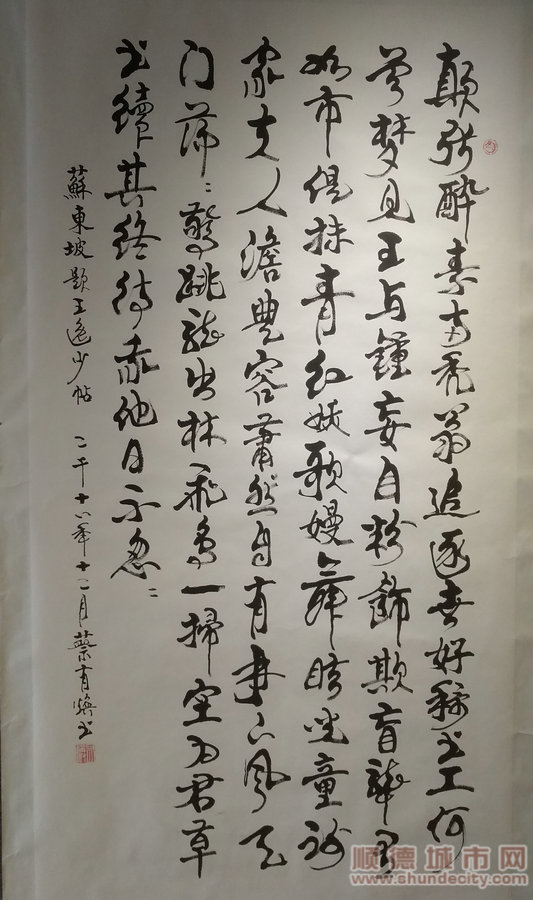 顛張醉素两秃翁追逐世好稱书工何
曾梦见王与鍾妄自粉飾欺盲聋有
如市倡抹青红妖歌嫚舞眩児童谢
家夫人澹豊容蕭然自有林下风天
门荡〻驚跳龍出林飛鸟一掃空为君草
书續其終待我他日不怱〻
蘇東坡题王逸少帖 二千十八年十二月蔡有焕书
顺德城市网
www.shundecity.com